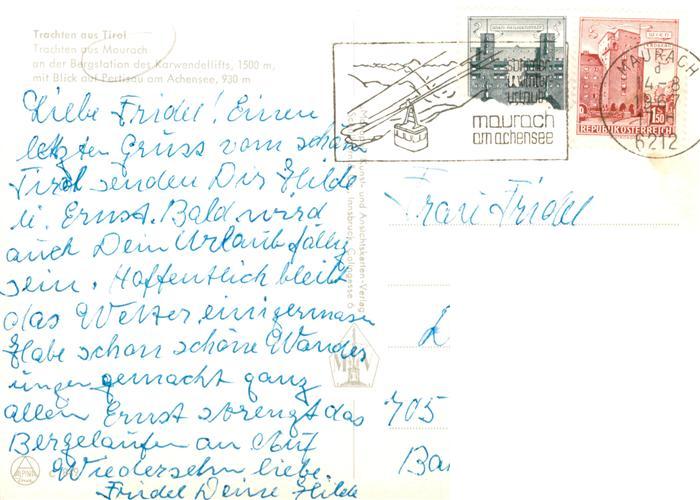 Trachten aus Tirol
Trachten aus Maurach
an der Bergstation des Karwendellifts, 1500 m,
mit Blick auf Pertisau am Achensee, 930 m
Liebe Fridel! Einen
letzten Gruss vom schön
Tirol senden Dir Hilde
u. Ernst. Bald wird
auch Dein Urlaub fällig
sein. Hoffentlich bleibt
das Wetter einigermasen
Habe schon schöne Wander
ungen gemacht ganz
allein Ernst strengt das
Bergelaufen an Auf
Wiedersehn liebe.
Fridel Deine Hilde
sommer
winter
urlaub
maurach
am achensee
REPUBLIK ÖSTERREICH
1.50
MAURACH
6212
Kunst- und Ansichtskarten-Verlag
Innsbruck
Frau Fridel
705
ALPINA